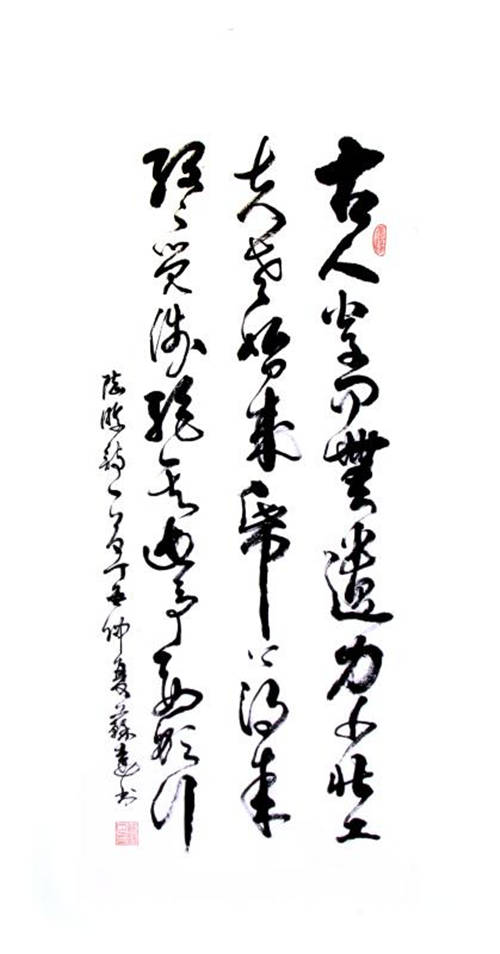 古人学问無遺力少壮工
夫老始成帋上得来
终觉浅绝知此事要躬行
陆游诗一首丁亥仲夏蘇书